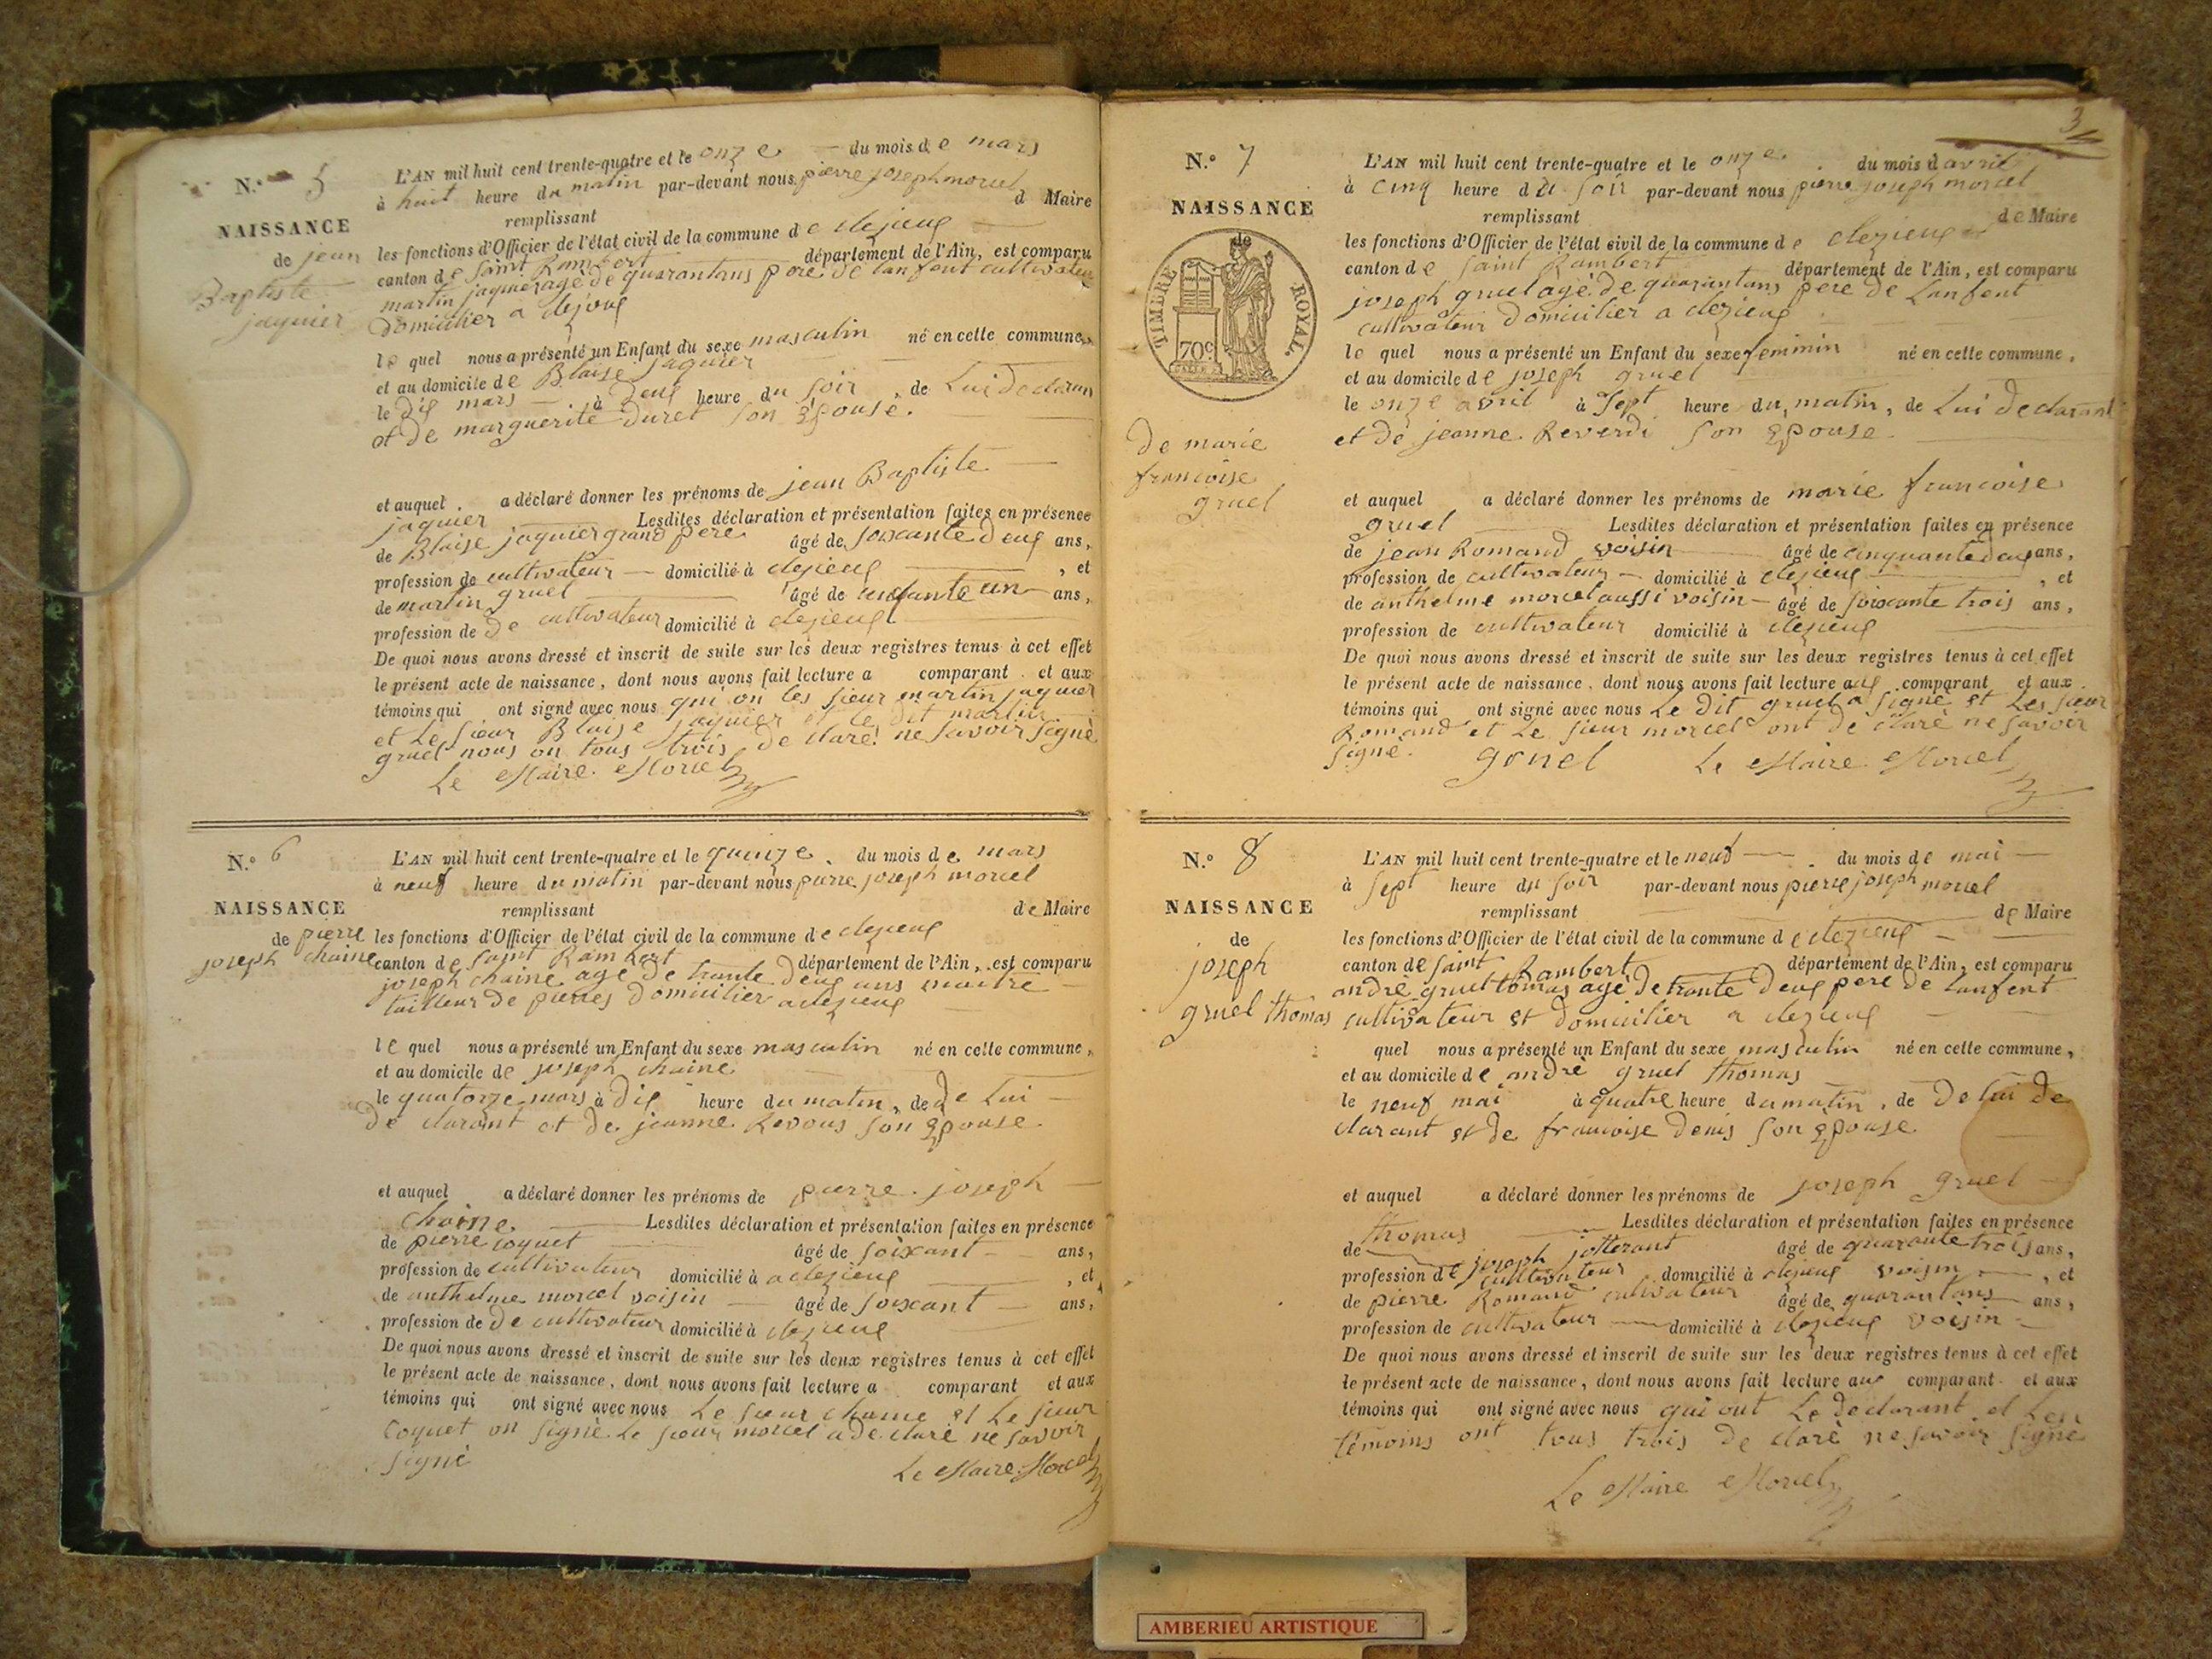 N.° 5
NAISSANCE
de jean
Baptiste
jaquier
L'AN mil huit cent trente-quatre et le onze du mois de mars
à huit heure du matin par-devant nous pierre joseph morcel
remplissant d Maire
les fonctions d'Officier de l'état civil de la commune de clezieux
canton de Saint Rambert département de l'Ain, est comparu
martin jaquier agé de quarantans pere de lanfent cultivateur
domicilier a
le quel nous a présenté un Enfant du sexe masculin né en cette commune,
et au domicile de Blaise jaquier
le dix mars à deux heure du soir, de Lui declarant
et de marguerite duret son Epouse.
et auquel a déclaré donner les prénoms de jean Baptiste
jaquier Lesdites déclaration et présentation faites en présence
de Blaise jaquier grand pere âgé de soixante deux ans,
profession de cultivateur domicilié à clezieux, et
de martin gruel âgé de un ans,
profession de de cultivateur domicilié à clezieux
De quoi nous avons dressé et inscrit de suite sur les deux registres tenus à cet effet
le présent acte de naissance, dont nous avons fait lecture a comparant et aux
témoins qui ont signé avec nous qui on les sieur martin jaquier
et Le sieur Blaise jaquier et le dit martin
gruel nous on tous trois declaré ne savoir signé
Le Maire Morcel
N.° 6
NAISSANCE
de pierre
joseph chaine
L'AN mil huit cent trente-quatre et le quinze du mois de mars
à neuf heure du matin par-devant nous pierre joseph morcel
remplissant de Maire
les fonctions d'Officier de l'état civil de la commune de clezieux
canton de Saint Rambert département de l'Ain, est comparu
joseph chaine age de trante deux ans maitre
tailleur de pierres domicilier a clezieux
le quel nous a présenté un Enfant du sexe masculin né en cette commune,
et au domicile de joseph chaine
le quatorze mars à dix heure du matin, de de Lui
de clarant et de jeanne Revous son Epouse
et auquel a déclaré donner les prénoms de pierre joseph
chaine. Lesdites déclaration et présentation faites en présence
de pierre coquet âgé de soixant ans,
profession de cultivateur domicilié à a clezieux, et
de anthelme morcel voisin âgé de soixant ans,
profession de de cultivateur domicilié à clezieux
De quoi nous avons dressé et inscrit de suite sur les deux registres tenus à cet effet
le présent acte de naissance, dont nous avons fait lecture a comparant et aux
témoins qui ont signé avec nous Le sieur chaine et Le sieur
coquet on signè Le sieur morcel a de claré ne savoir
signé
Le Maire Morcel
3
N.° 7
NAISSANCE
de
TIMBRE ROYAL.
70c
de marie
francoise
gruel
L'AN mil huit cent trente-quatre et le onze du mois d avril
à cinq heure du soir par-devant nous pierre joseph morcel
remplissant de Maire
les fonctions d'Officier de l'état civil de la commune de clezieux
canton de Saint Rambert département de l'Ain, est comparu
joseph gruel agé de quarantans pere de Lanfent
cultivateur domicilier a clezieux
le quel nous a présenté un Enfant du sexe feminin né en cette commune,
et au domicile de joseph gruel
le onze avril à sept heure du matin, de Lui declarant
et de jeanne Reverdi son Epouse
et auquel a déclaré donner les prénoms de marie francoise
gruel Lesdites déclaration et présentation faites en présence
de jean Romand voisin âgé de cinquante deux ans,
profession de cultivateur domicilié à clezieux, et
de anthelme morcel aussi voisin âgé de soixante trois ans,
profession de cultivateur domicilié à clezieux
De quoi nous avons dressé et inscrit de suite sur les deux registres tenus à cet effet
le présent acte de naissance, dont nous avons fait lecture aux comparant et aux
témoins qui ont signé avec nous Le dit gruel a signé et Les sieur
Romand et Le sieur morcel ont de claré ne savoir
signé. gruel Le Maire Morcel
N.° 8
NAISSANCE
de
joseph
gruel thomas
L'AN mil huit cent trente-quatre et le neuf du mois de mai
à sept heure du soir par-devant nous pierre joseph morcel
remplissant de Maire
les fonctions d'Officier de l'état civil de la commune de clezieux
canton de saint Rambert département de l'Ain, est comparu
andrè gruel tomas agé de trante deux pere de Lanfent
cultivateur et domicilier a clezieux
quel nous a présenté un Enfant du sexe masculin né en cette commune,
et au domicile de andrè gruel thomas
le neuf mai à quatre heure du matin, de de lui de
clarant et de francoise denis son Epouse
et auquel a déclaré donner les prénoms de joseph gruel
thomas Lesdites déclaration et présentation faites en présence
de joseph jotterant âgé de quarante trois ans,
profession de cultivateur domicilié à clezieux voisin, et
de pierre Romand cultivateur âgé de quarantans ans,
profession de cultivateur domicilié à clezieux voisin
De quoi nous avons dressé et inscrit de suite sur les deux registres tenus à cet effet
le présent acte de naissance, dont nous avons fait lecture aux comparant et aux
témoins qui ont signé avec nous qui ont Le declarant et Les
témoins ont tous trois de claré ne savoir signé
Le Maire Morcel
AMBERIEU ARTISTIQUE